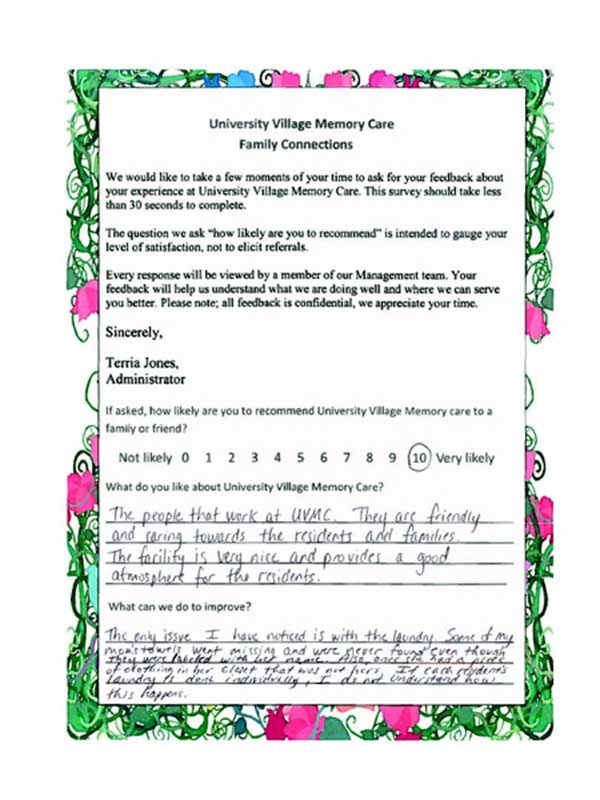 University Village Memory Care
Family Connections
We would like to take a few moments of your time to ask for your feedback about
your experience at University Village Memory Care. This survey should take less
than 30 seconds to complete.
The question we ask “how likely are you to recommend” is intended to gauge your
level of satisfaction, not to elicit referrals.
Every response will be viewed by a member of our Management team. Your
feedback will help us understand what we are doing well and where we can serve
you better. Please note; all feedback is confidential, we appreciate your time.
Sincerely,
Terria Jones,
Administrator
If asked, how likely are you to recommend University Village Memory care to a
family or friend?
Not likely 0 1 2 3 4 5 6 7 8 9 10 Very likely
What do you like about University Village Memory Care?
The people that work at UVMC. They are friendly
and caring towards the residents and families.
The facility is very nice and provides a good
atmosphere for the residents.
What can we do to improve?
The only issue I have noticed is with the laundry. Some of my
mom's towels went missing and were never found even though
they were labeled with her name. Also, once she had a piece
of clothing in her closet that was not hers. If each resident's
laundry is done individually, I do not understand how
this happens.